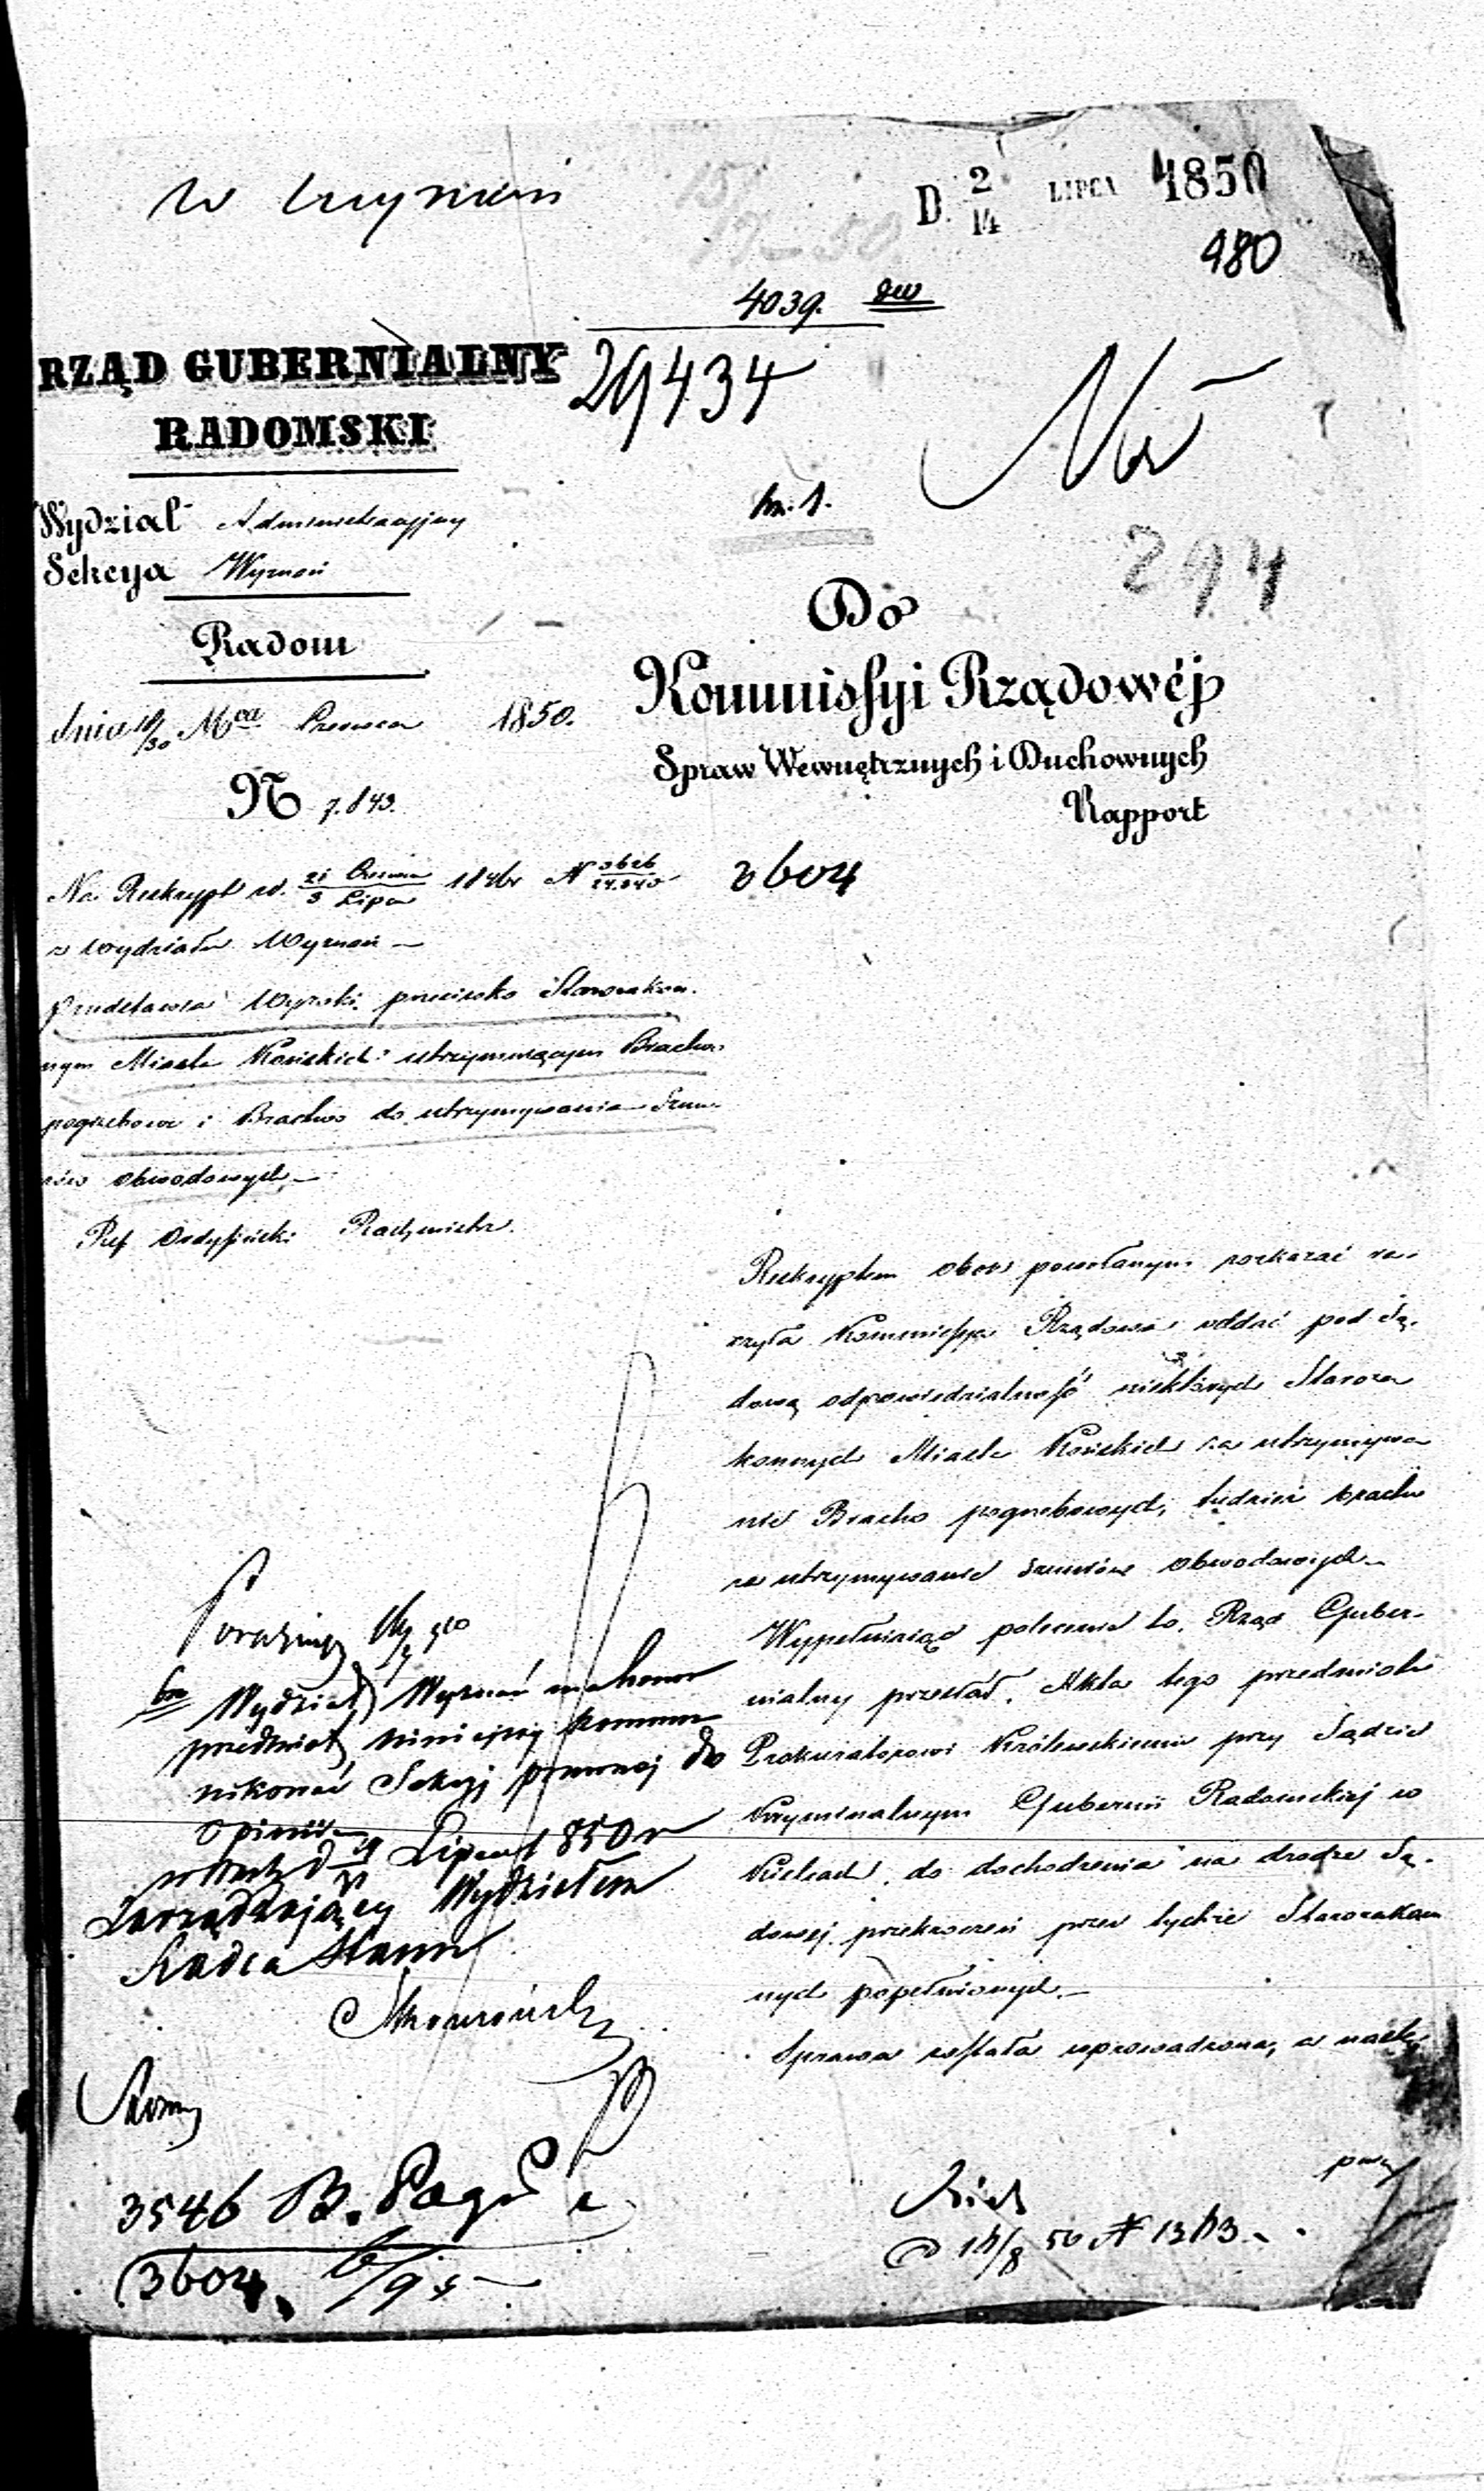 D. 2/14 LIPCA 1850
480
4039.
29434
RZĄD GUBERNIALNY
RADOMSKI
Wydział Administracyjny
Sekcya Wyznań
Radom
dnia 18/30 Mca Czerwca 1850.
N 7.843.
294
Do
Kommissyi Rządowéj
Spraw Wewnętrznych i Duchownych
Rapport
Na Reskrypt z d. 21 Czerwca/3 Lipca 1846r N
z Wydziału Wyznań —
3604
Przedstawia Wyroki przeciwko Starozakon-
nym Miasta Końskich utrzymującym Bractwo
pogrzebowe i Bractwo do utrzymywania Sznu-
rów obwodowych —
Ref Radzminski
Reskryptem obok powołanym rozkazać ra-
czyła Kommissya Rządowa oddać pod Są-
dową odpowiedzialność niektórych Staroza
konnych Miasta Końskich za utrzymywa
nie Bractw pogrzebowych, tudzież bractw
za utrzymywanie sznurów obwodowych —
Wypełniając polecenie to, Rząd Guber-
nialny przesłał Akta tego przedmiotu
Prokuratorowi Królewskiemu przy Sądzie
Kryminalnym Gubernii Radomskiej w
Kielcach, do dochodzenia na drodze Są-
dowej przekroczeń przez tychże Starozakon
nych popełnionych. —
Sprawa została wprowadzona, a nastę-
Wydział Wyznań ma honor
przedmiot niniejszy kommu
nikować Sekcyi prawnej do
opinii
Lipca 1850 r
Zarządzający Wydziałem
Radca Stanu
3546 B.
3604.
14/8 50 N 1313